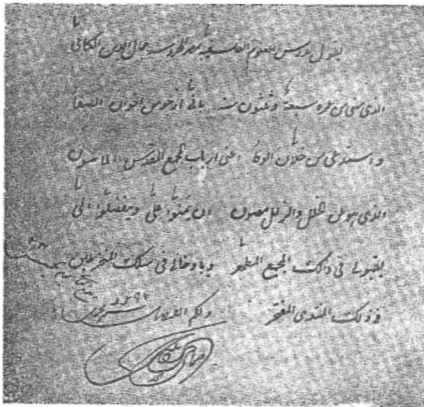 يقول مدرس العلوم الفلسفية بمصر المحروسة جمال الدين الكابلي
الذي مضى من عمره سبعة وثلثون سنه بأني أرجو من اخوان الصفا
واستدعي من خلان الوفا اعني ارباب المجمع المقدس الماسون
الذي هو عن الخلل والزلل مصون ان يمنوا علي ويتفضلوا الي
بقبولي في ذلك المجمع المطهر وبادخالي في سلك المنخرطين
في ذلك المنتدى المفتخر ولكم الفضل